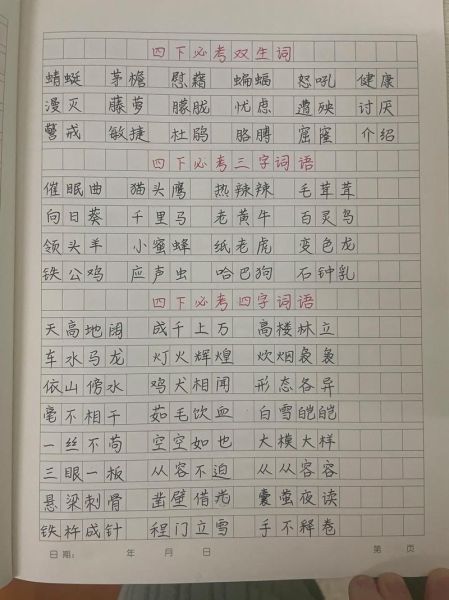 四下必考双生词
蜻蜓 茅檐 慰藉 蝙蝠 怒吼 健康
漫灭 藤萝 朦胧 忧虑 遭殃 讨厌
警戒 敏捷 杜鹃 胳膊 窟窿 介绍
四下必考三字词语
催眠曲 猫头鹰 热辣辣 毛茸茸
向日葵 千里马 老黄牛 百灵鸟
领头羊 小蜜蜂 纸老虎 变色龙
铁公鸡 应声虫 哈巴狗 石钟乳
四下必考四字词语
天高地阔 成千上万 高楼林立
车水马龙 灯火辉煌 炊烟袅袅
依山傍水 鸡犬相闻 形态各异
毫不相干 茹毛饮血 白雪皑皑
一丝不苟 空空如也 大模大样
三眼一板 从容不迫 从从容容
悬梁刺骨 凿壁借光 囊萤夜读
铁杵成针 程门立雪 手不释卷
日期： 年 月 日 第 页